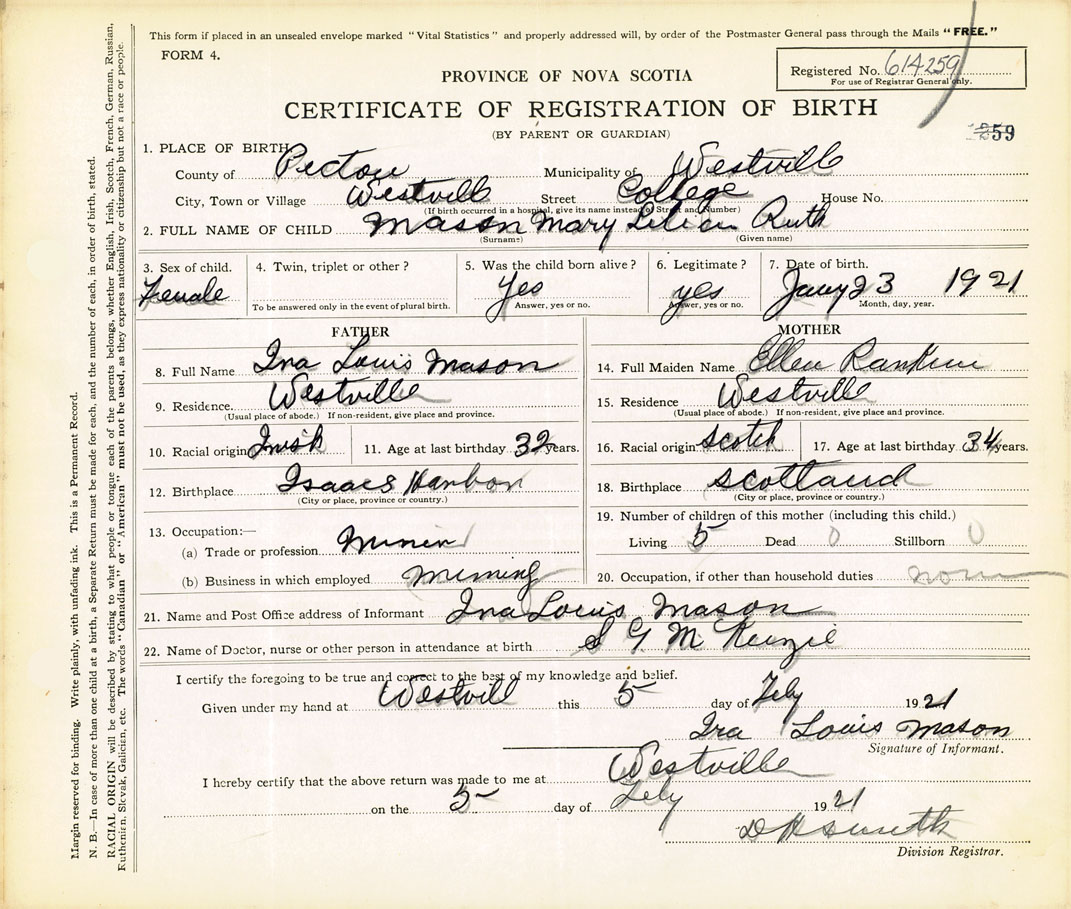 This form if placed in an unsealed envelope marked "Vital Statistics" and properly addressed will, by order of the Postmaster General pass through the Mails "FREE."
FORM 4.
Registered No. 614259
For use of Registrar General only.
PROVINCE OF NOVA SCOTIA
CERTIFICATE OF REGISTRATION OF BIRTH
(BY PARENT OR GUARDIAN)
259
1. PLACE OF BIRTH
County of Pictou Municipality of Westvill
City, Town or Village Westvill Street College House No.
(If birth occurred in a hospital, give its name instead of Street and Number)
2. FULL NAME OF CHILD Mason Mary Lilian Ruth
(Surname) (Given name)
3. Sex of child. 4. Twin, triplet or other? 5. Was the child born alive? 6. Legitimate? 7. Date of birth.
Female Yes yes Jany 23 1921
To be answered only in the event of plural birth. Answer, yes or no. Answer, yes or no. Month, day, year.
FATHER
8. Full Name Ira Louis Mason
9. Residence. Westville
(Usual place of abode.) If non-resident, give place and province.
10. Racial origin Irish 11. Age at last birthday 32 years.
12. Birthplace Isaacs Harbor
(City or place, province or country.)
13. Occupation:—
(a) Trade or profession Miner
(b) Business in which employed mining
MOTHER
14. Full Maiden Name Ellen Rankine
15. Residence Westville
(Usual place of abode.) If non-resident, give place and province.
16. Racial origin Scotch 17. Age at last birthday 34 years.
18. Birthplace Scotland
(City or place, province or country.)
19. Number of children of this mother (including this child.)
Living 5 Dead 0 Stillborn 0
20. Occupation, if other than household duties none
21. Name and Post Office address of Informant Ira Louis Mason
22. Name of Doctor, nurse or other person in attendance at birth S G McKenzie
I certify the foregoing to be true and correct to the best of my knowledge and belief.
Given under my hand at Westvill this 5 day of Feby 1921
Ira Louis Mason
Signature of Informant.
I hereby certify that the above return was made to me at Westville
on the 5 day of Feby 1921
D H Smith
Division Registrar.
Margin reserved for binding. Write plainly, with unfading ink. This is a Permanent Record.
N. B.—In case of more than one child at a birth, a Separate Return must be made for each, and the number of each, in order of birth, stated.
RACIAL ORIGIN will be described by stating to what people or tongue each of the parents belongs, whether English, Irish, Scotch, French, German, Russian,
Ruthenian, Slovak, Galician, etc. The words "Canadian" or "American" must not be used, as they express nationality or citizenship but not a race or people.